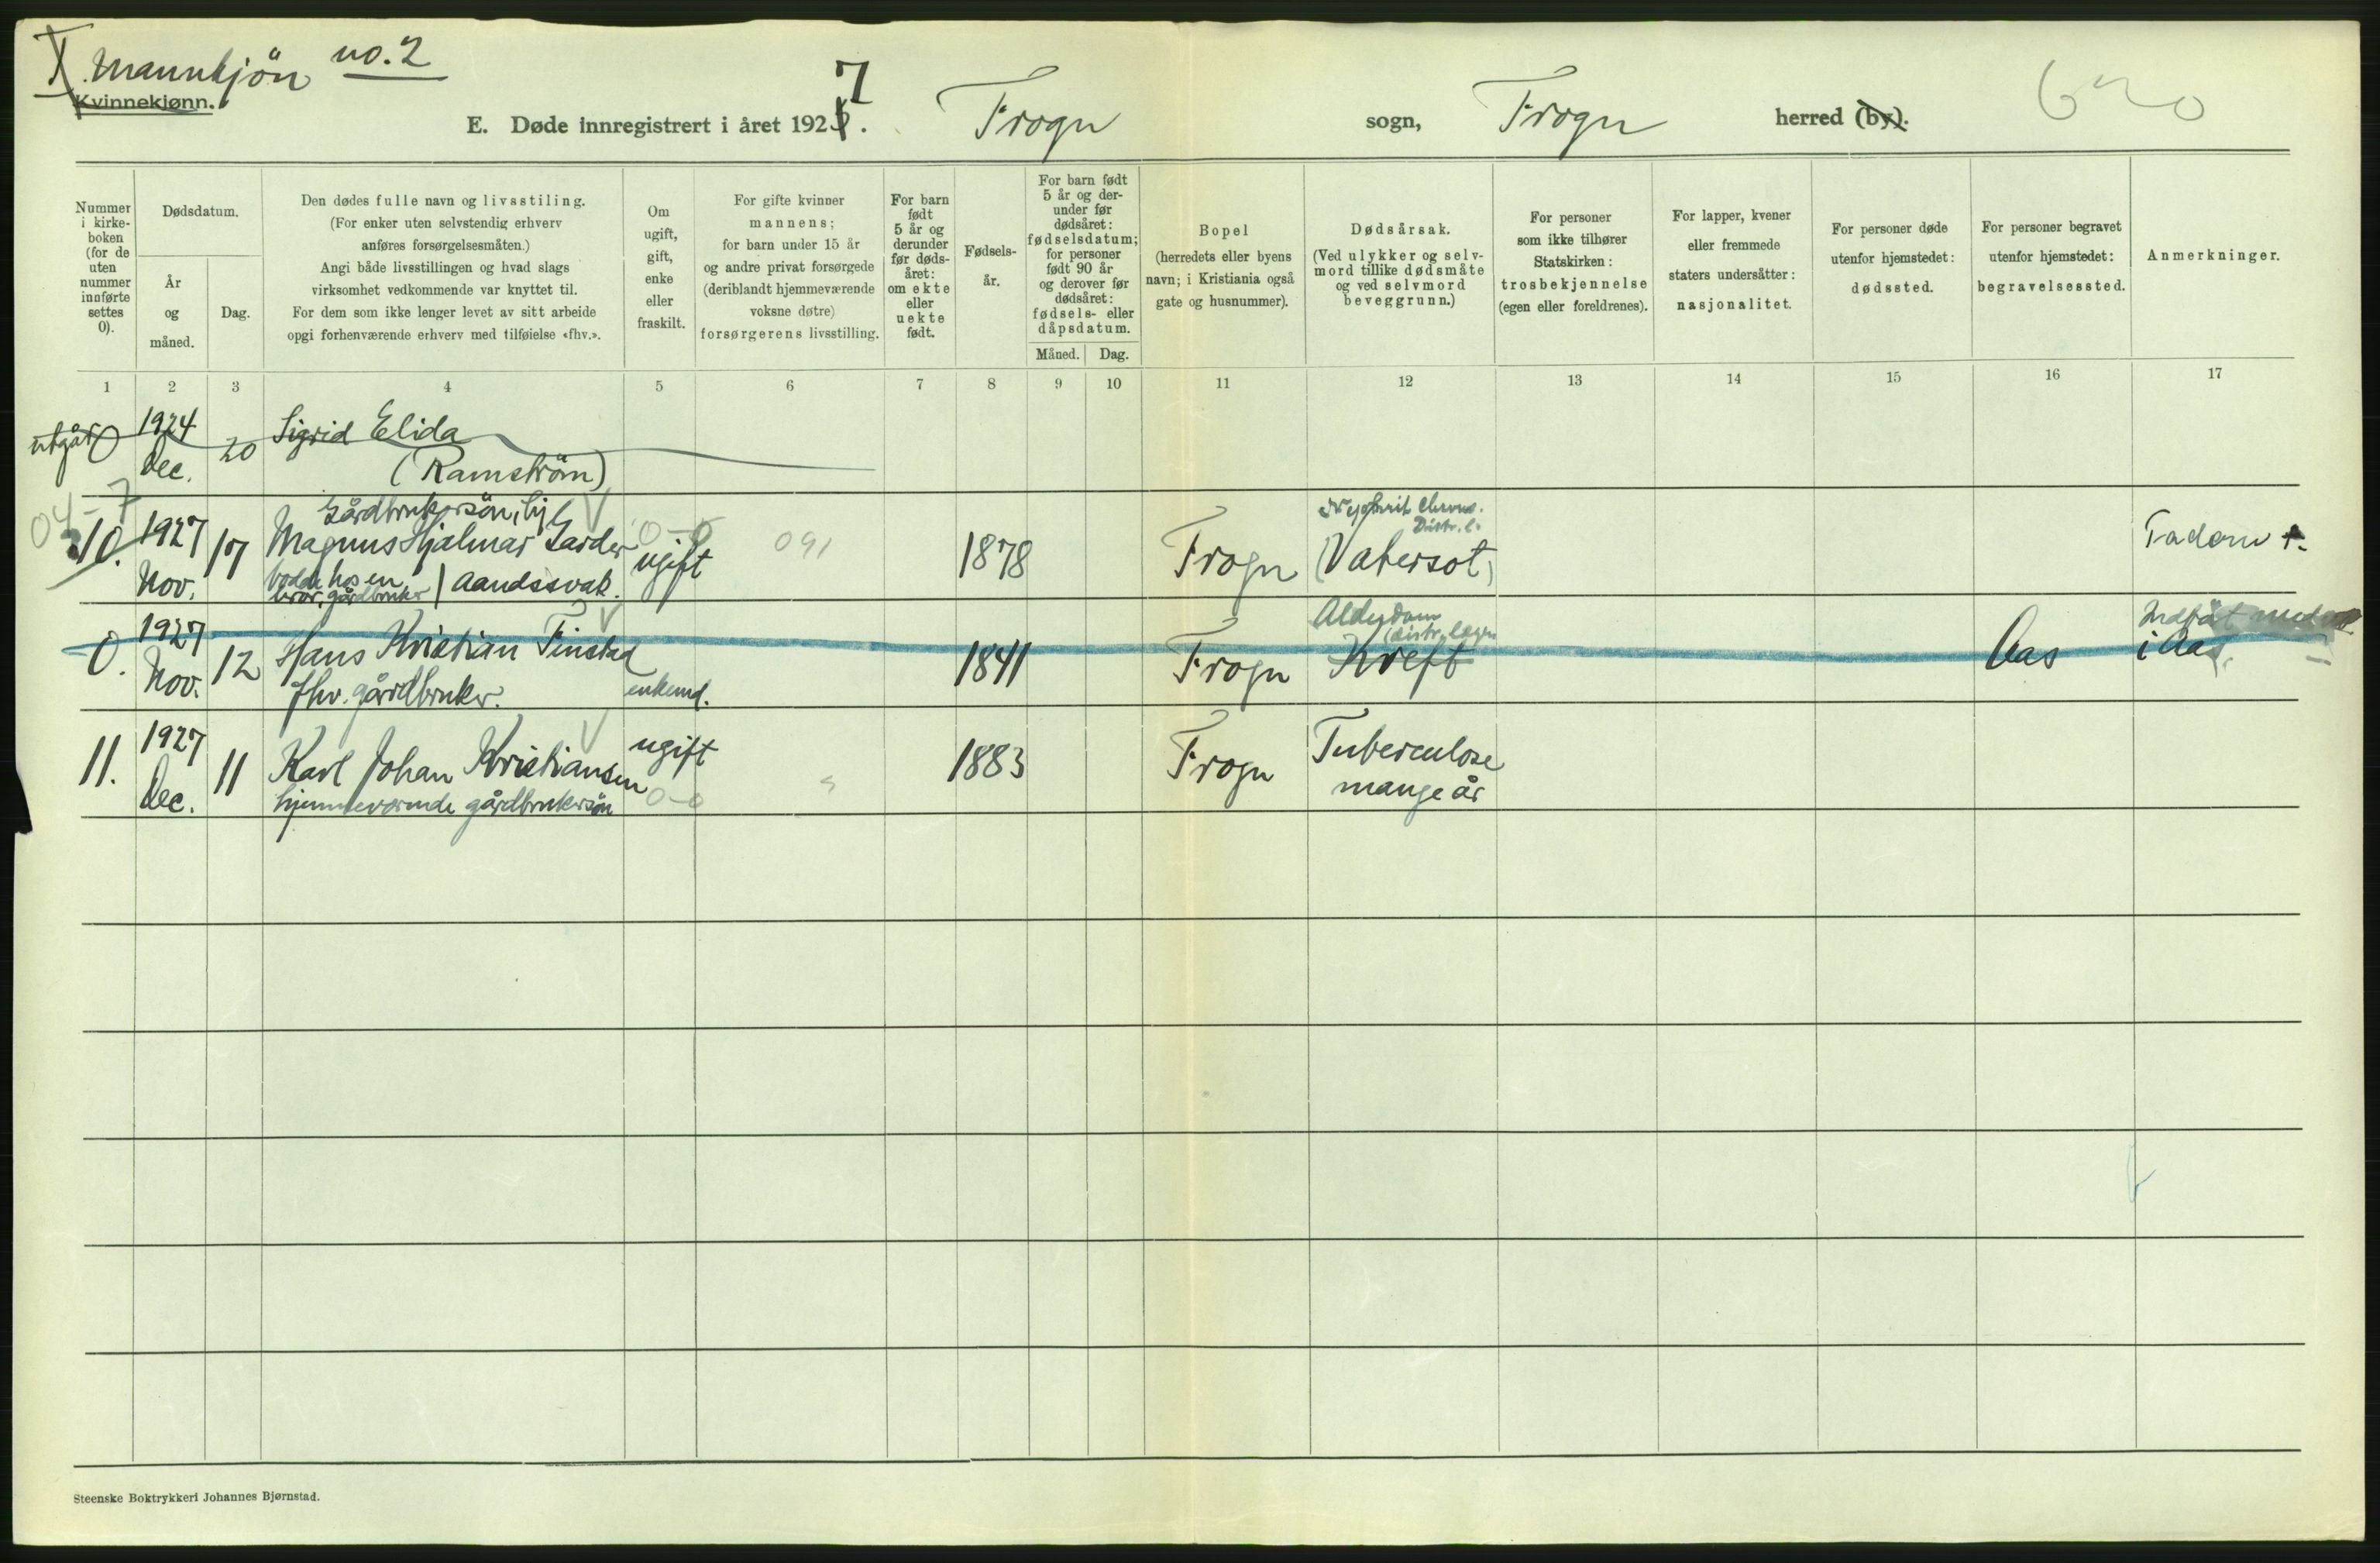 Mannkjön no. 2
Kvinnekjønn.
E. Døde innregistrert i året 1927. Frogn sogn, Frogn herred (by).
Nummer i kirke-boken (for de uten nummer innførte settes 0).
Dødsdatum.
År og måned.
Dag.
Den dødes fulle navn og livsstiling.
(For enker uten selvstendig erhverv
anføres forsørgelsesmåten.)
Angi både livsstillingen og hvad slags
virksomhet vedkommende var knyttet til.
For dem som ikke lenger levet av sitt arbeide
opgi forhenværende erhverv med tilføielse «fhv.».
Om
ugift,
gift,
enke
eller
fraskilt.
For gifte kvinner
mannens;
for barn under 15 år
og andre privat forsørgede
(deriblandt hjemmeværende
voksne døtre)
forsørgerens livsstilling.
For barn
født
5 år og
derunder
før døds-
året:
om ekte
eller
uekte
født.
Fødsels-
år.
For barn født
5 år og der-
under før
dødsåret:
fødselsdatum;
for personer
født 90 år
og derover før
dødsåret:
fødsels- eller
dåpsdatum.
Måned. Dag.
Bopel
(herredets eller byens
navn; i Kristiania også
gate og husnummer).
Dødsårsak.
(Ved ulykker og selv-
mord tillike dødsmåte
og ved selvmord
beveggrunn.)
For personer
som ikke tilhører
Statskirken:
trosbekjennelse
(egen eller foreldrenes).
For lapper, kvener
eller fremmede
staters undersåtter:
nasjonalitet.
For personer døde
utenfor hjemstedet:
dødssted.
For personer begravet
utenfor hjemstedet:
begravelsessted.
Anmerkninger.
1 2 3 4 5 6 7 8 9 10 11 12 13 14 15 16 17
utgår 0 1924 Dec. 20 Sigrid Elida
(Ramström)
04-7
10. 1927 Nov. 17 Gårdbrukersön, hj
Magnus Hjalmar Garder
bodde hos en
bror, gårdbruker | Aandssvak.
0-0
ugift 091 1878 Frogn
chron.
Distr. l.
(Vatersot)
0. 1927 Nov. 12 Hans Kristian Finstad
fhv. gårdbruker. enkemd. 1841 Frogn
Alderdom
(distr. lægen
Kreft
Aas
i Aas.
11. 1927 Dec. 11 Karl Johan Kristiansen
hjemmeværende gårdbrukersön
ugift
0-0
1883 Frogn Tuberculose
mange år
Steenske Boktrykkeri Johannes Bjørnstad.